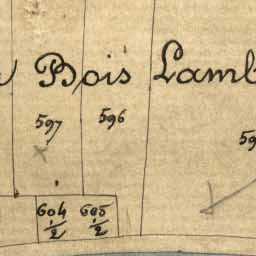 Bois Lamb
597 596 59
604/2 605/2